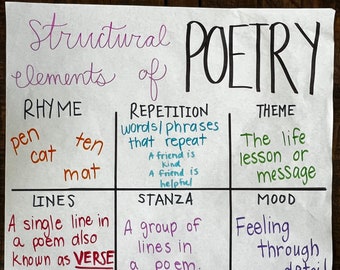 Structural
elements of POETRY
RHYME
pen ten
cat
mat
REPETITION
words/phrases
that repeat
A friend is
kind
A friend is
helpful
THEME
The life
lesson or
message
LINES
A single line in
a poem also
known as VERSE
STANZA
A group of
lines in
a poem.
MOOD
Feeling
through
detail